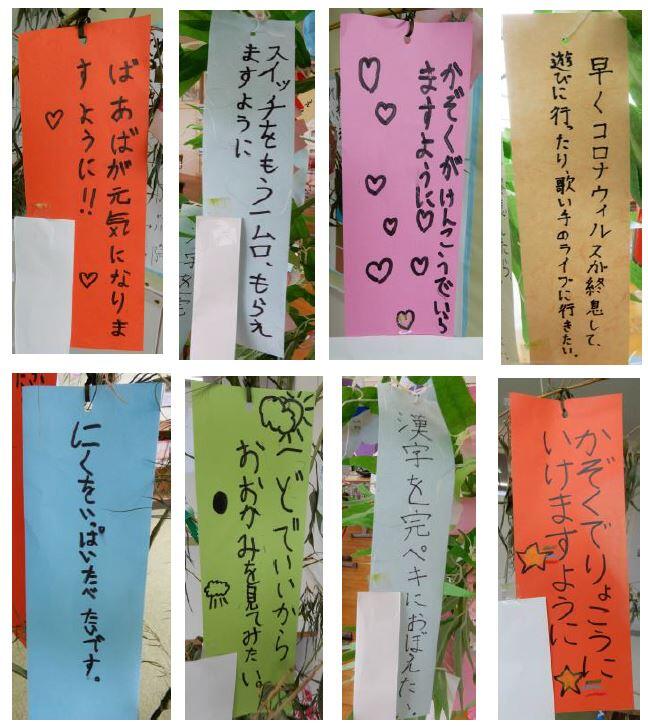 ばあばが元気になりま
すように!!
スイッチをもう一台、もらえ
ますように
かぞくがけんこうでいら
ますように
早くコロナウィルスが終息して、
遊びに行ったり、歌い手のライブに行きたい。
にくをいっぱいたべたいです。
一どでいいから
おおかみを見てみたい。
漢字を完ペキにおぼえたい。
かぞくでりょこうに
いけますように